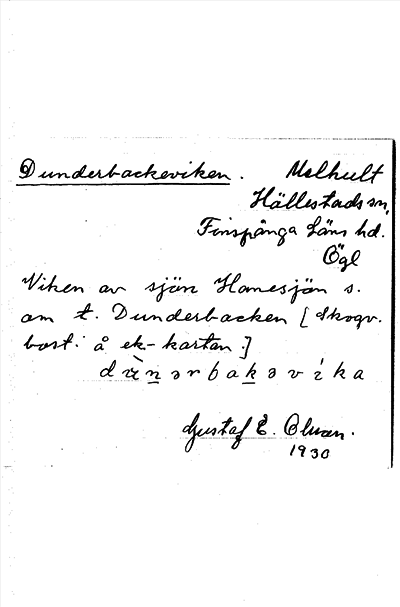 Dunderbackeviken. Melhult
Hällestads sn,
Finspånga läns hd.
Ögl
Viken av sjön Hanesjön s.
om t. Dunderbacken [Skogv.
bost. å ek-kartan]
dùnərbakəvíka
Gustaf E. Olson.
1930